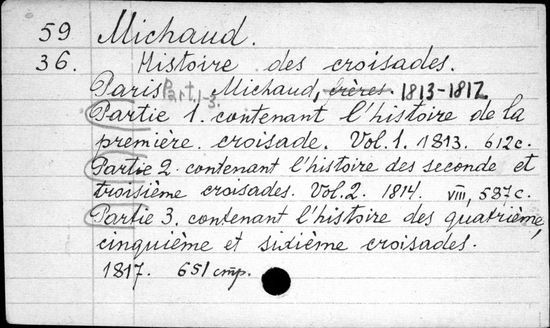 59 Michaud.
36. Histoire des croisades.
Paris Part. 1-3. Michaud, frères. 1813-1817
Partie 1. contenant l'histoire de la
première croisade. Vol. 1. 1813. 612c.
Partie 2. contenant l'histoire des seconde et
troisième croisades. Vol. 2. 1814. viii, 587c.
Partie 3. contenant l'histoire des quatrième,
cinquième et sixième croisades.
1817. 651 cmp.